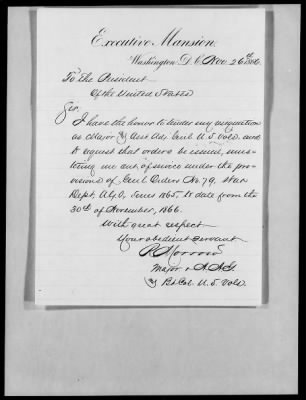 Executive Mansion,
Washington, D.C. Nov. 26th 1866.
To the President
of the United States
Sir
I have the honor to tender my resignation
as Major & Asst Adj. Genl. U.S. Vols. and
to request that orders be issued, mus-
tering me out of service under the pro-
visions of Genl Orders No. 79, War
Dept. A.G.O., Series 1865, to date from the
30th of November, 1866.
With great respect
Your obedient servant
R Morrow
Major & A.A.G.
& Bt Col. U.S. Vols.